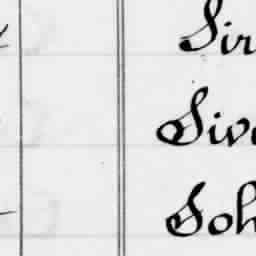 Sir
Siv
Soh